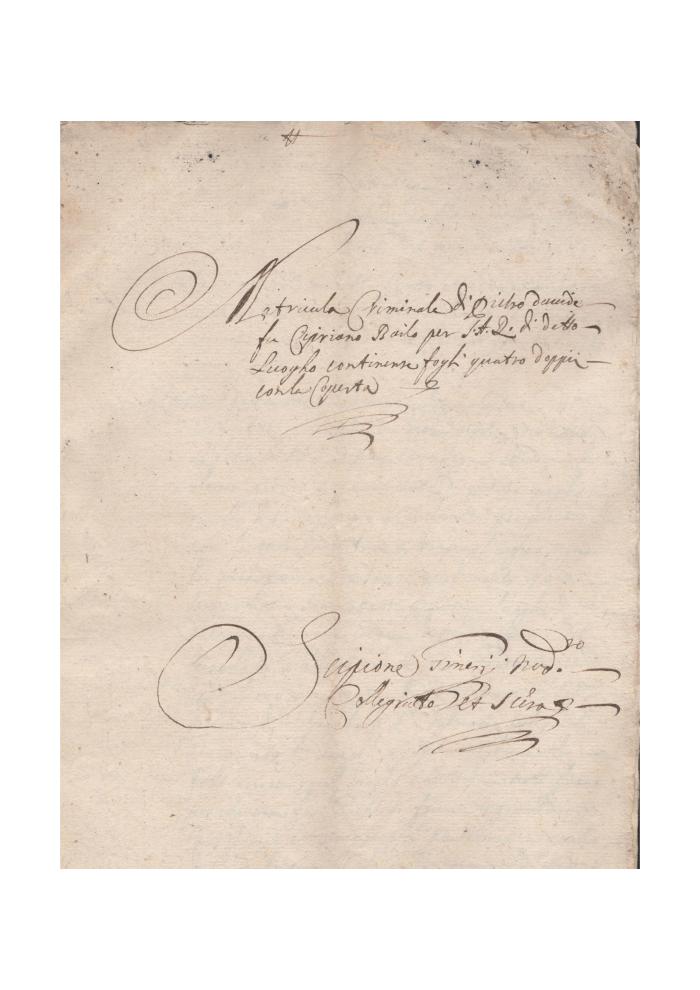 Matricula Criminale di Pietro davide
fu Cipriano Bailo per S.A.R. di detto
Luogho continense fogli quatro doppii
con la Coperta
Scipione Nod.ro
Collegiatto et